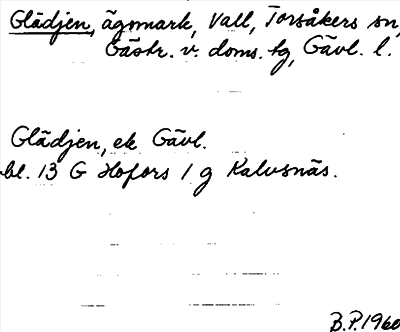 Glädjen, ägomark, Vall, Torsåkers sn,
Gästr. v. doms. tg, Gävl. l.
Glädjen, ek Gävl.
bl. 13 G Hofors 1 g Kalvsnäs.
B.P. 1960